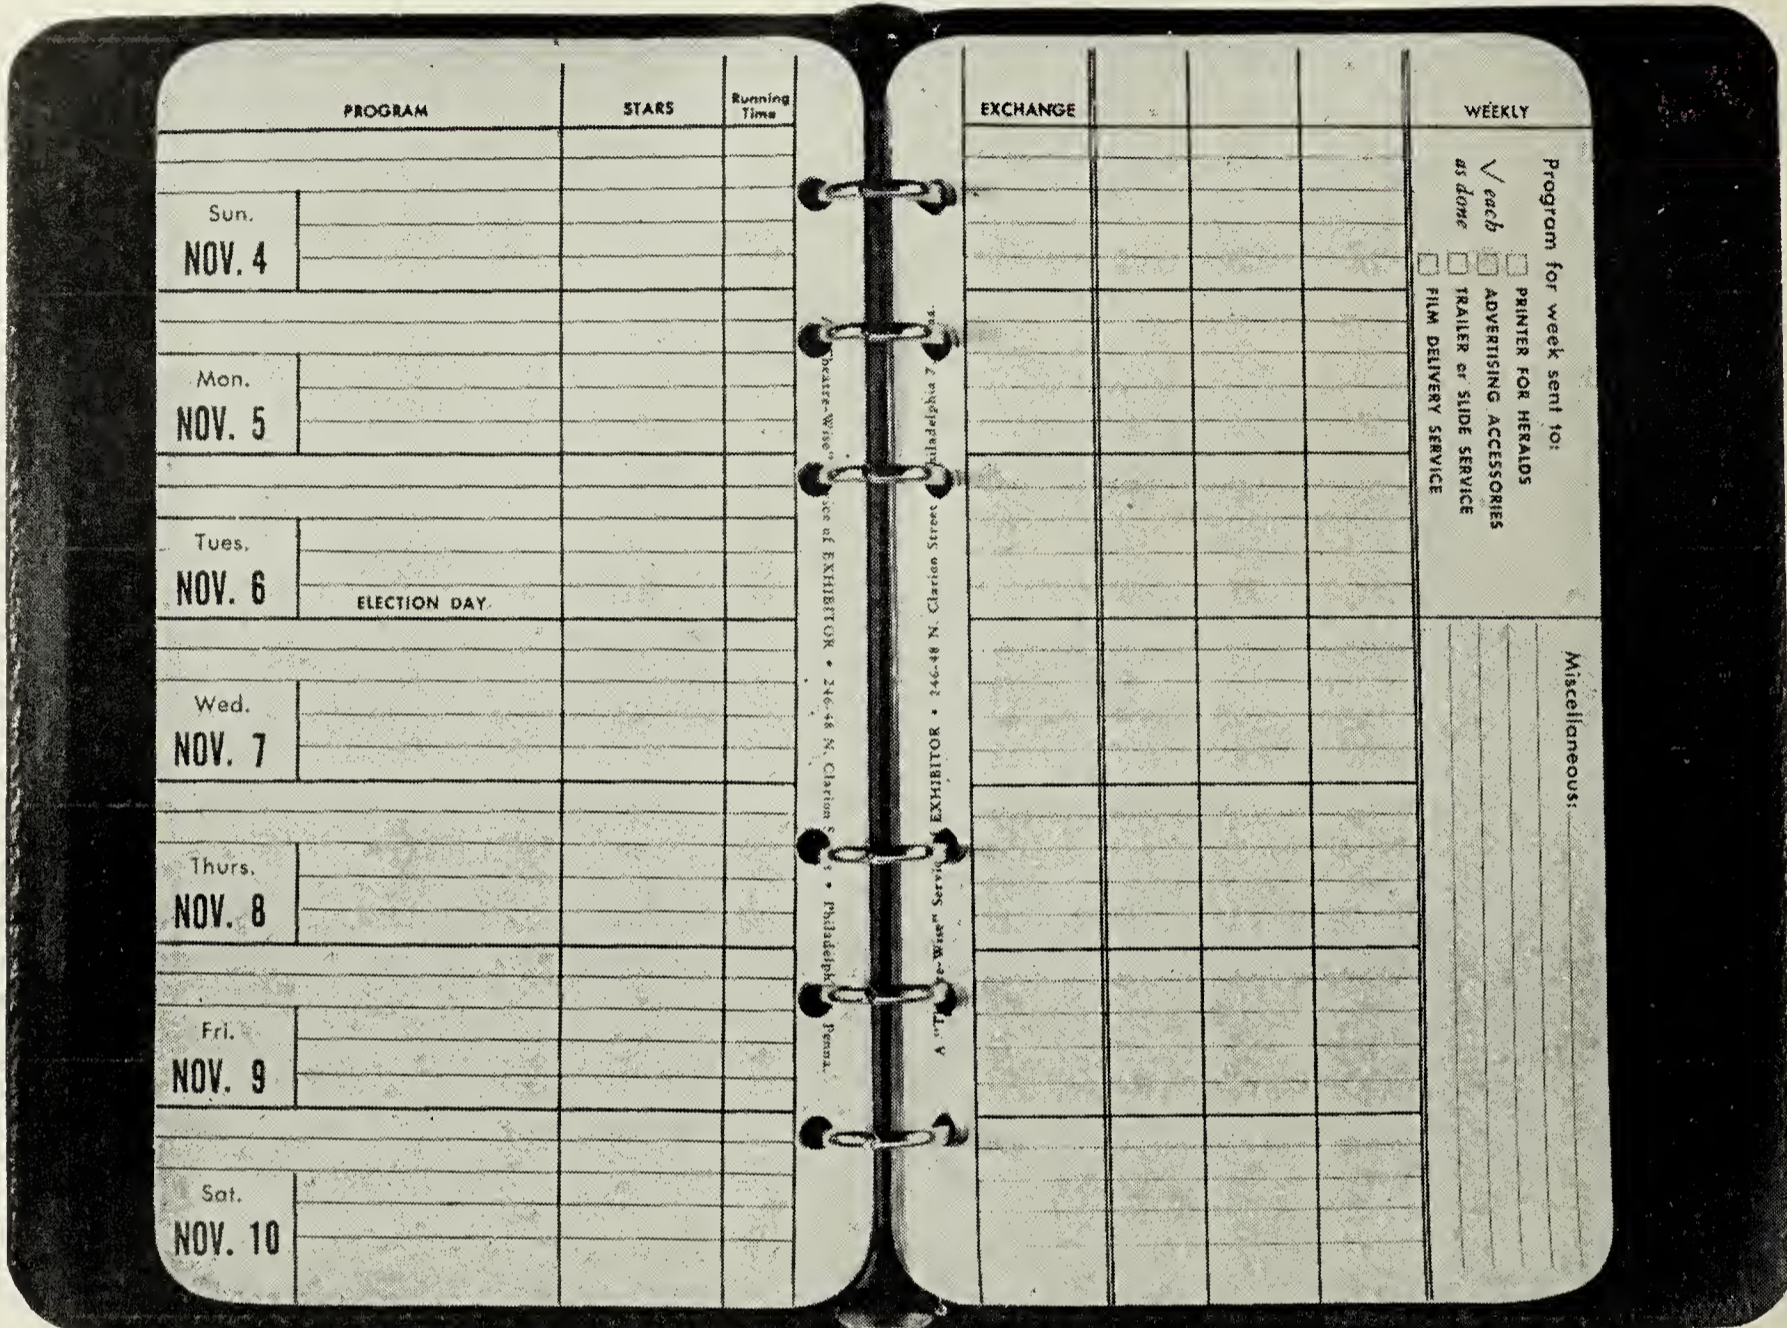 PROGRAM STARS Running Time
Sun.
NOV. 4
Mon.
NOV. 5
Tues.
NOV. 6
ELECTION DAY
Wed.
NOV. 7
Thurs.
NOV. 8
Fri.
NOV. 9
Sat.
NOV. 10
Theatre-Wise" of EXHIBITOR • 246-48 N. Clarion • Philadelph Penna.
A "T re-Wise" Servic EXHIBITOR • 246-48 N. Clarion Street hiladelphia 7
EXCHANGE WEEKLY
Program for week sent to:
√ each as done
PRINTER FOR HERALDS
ADVERTISING ACCESSORIES
TRAILER or SLIDE SERVICE
FILM DELIVERY SERVICE
Miscellaneous: